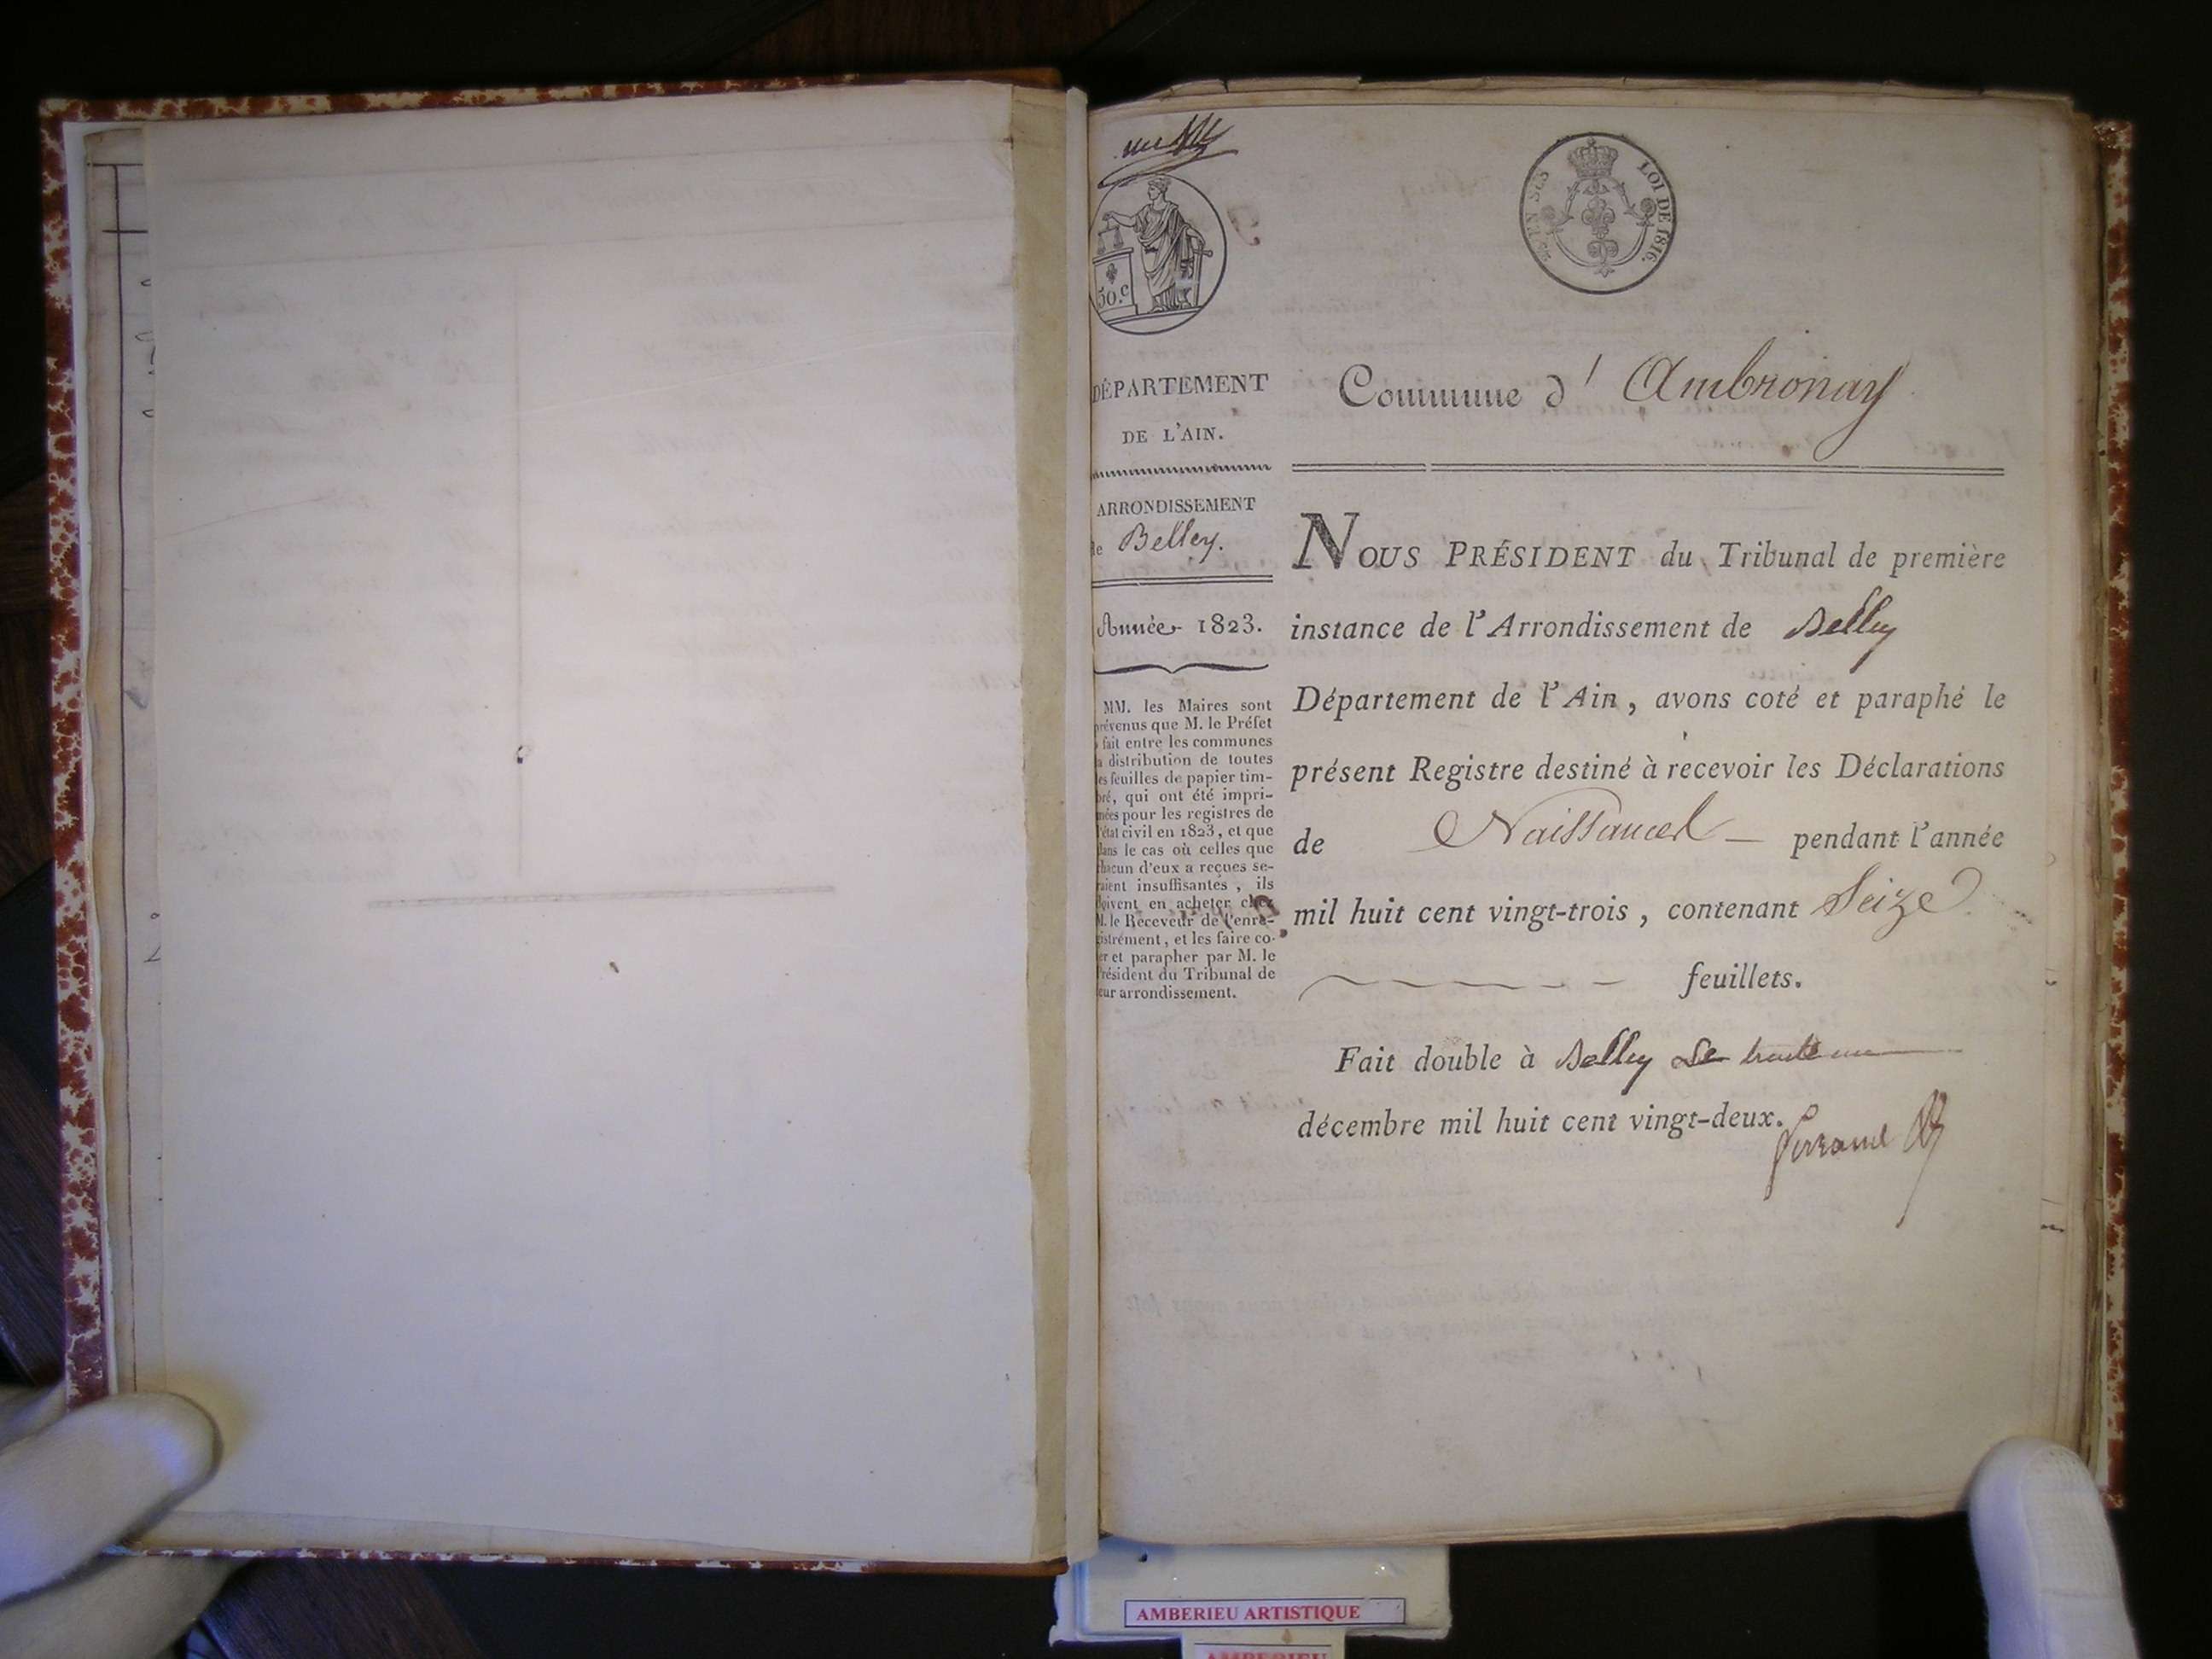 50.c
LOI DE 1816.
DÉPARTEMENT
DE L'AIN.
ARRONDISSEMENT
de Belley.
Année 1823.
MM. les Maires sont
prévenus que M. le Préfet
a fait entre les communes
la distribution de toutes
les feuilles de papier tim-
bré, qui ont été impri-
mées pour les registres de
l'état civil en 1823, et que
dans le cas où celles que
chacun d'eux a reçues se-
raient insuffisantes, ils
doivent en acheter chez
M. le Receveur de l'enre-
gistrement, et les faire co-
ter et parapher par M. le
Président du Tribunal de
leur arrondissement.
Commune d'Ambronay
NOUS PRÉSIDENT du Tribunal de première
instance de l'Arrondissement de Belley
Département de l'Ain, avons coté et paraphé le
présent Registre destiné à recevoir les Déclarations
de Naissances — pendant l'année
mil huit cent vingt-trois, contenant Seize
feuillets.
Fait double à Belley Le trente un
décembre mil huit cent vingt-deux.
AMBERIEU ARTISTIQUE
AMBERIEU